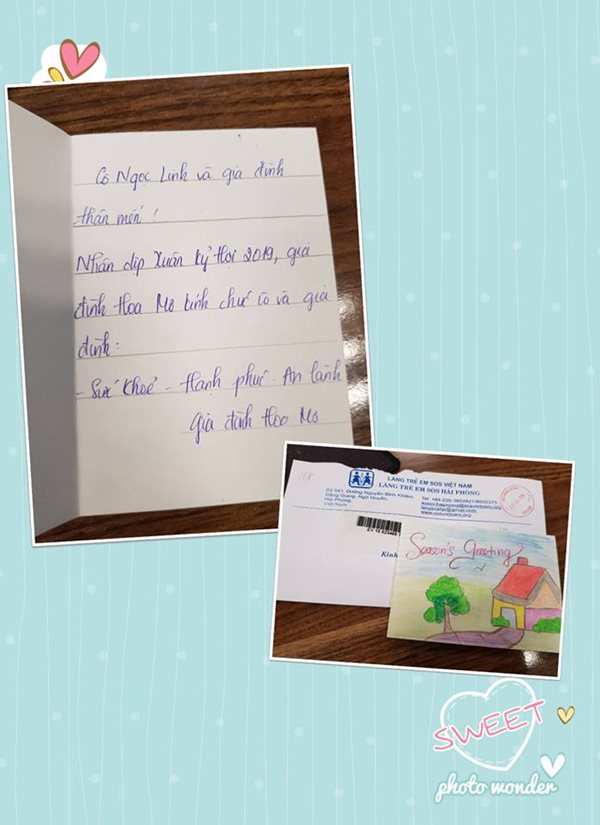 Cô Ngọc Linh và gia đình
thân mến!
Nhân dịp Xuân Kỷ Hợi 2019, gia
đình Hoa Mơ kính chúc cô và gia
đình:
- Sức khoẻ - Hạnh phúc - An lành
Gia đình Hoa Mơ
LÀNG TRẺ EM SOS VIỆT NAM
LÀNG TRẺ EM SOS HẢI PHÒNG
Số 541, Đường Nguyễn Bỉnh Khiêm,
Đằng Giang, Ngô Quyền,
Hải Phòng,
Việt Nam
Kính
Season's Greeting
SWEET
photo wonder